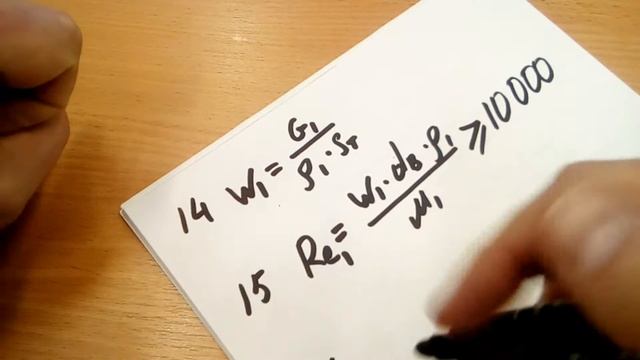 14 W₁ = G₁ / ρ₁ · Sт
15 Re₁ = W₁ · dв · ρ₁ / μ₁ ⩾ 10000